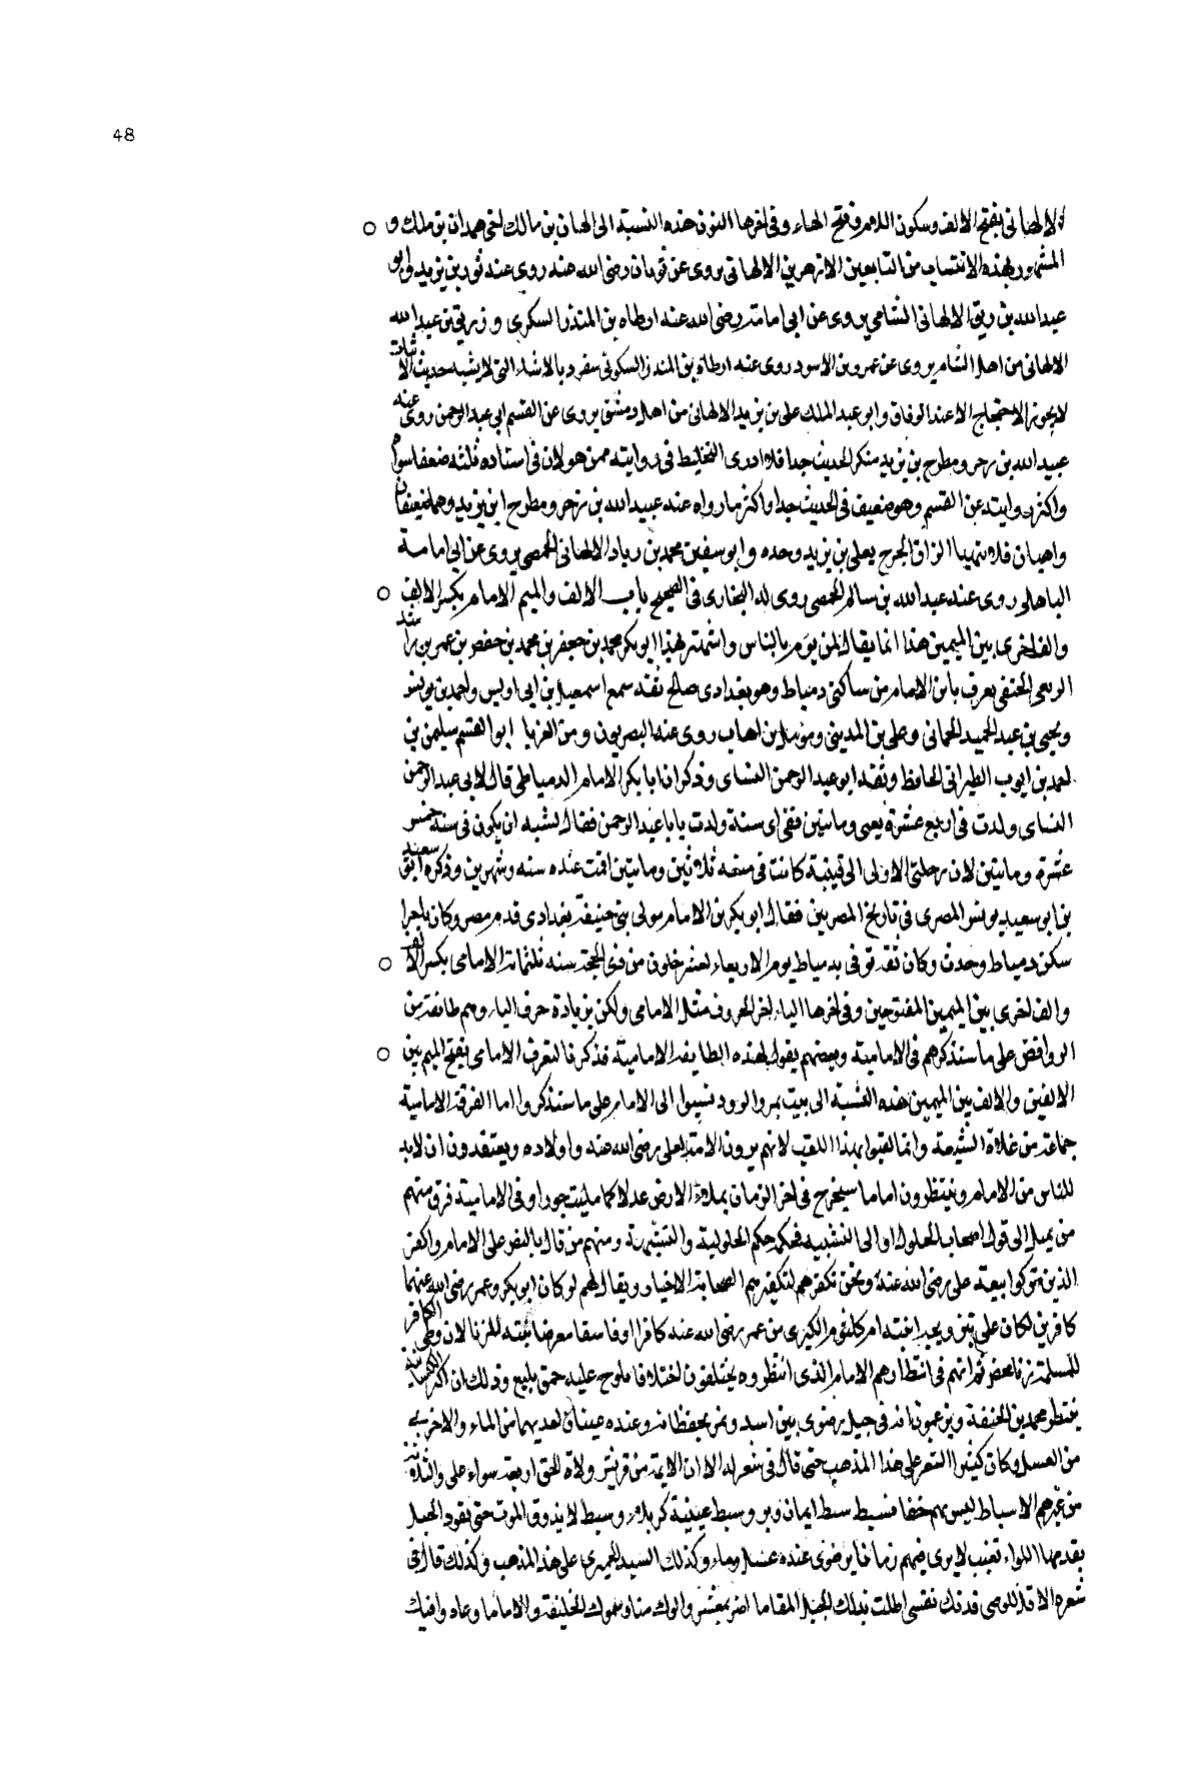 48
الالهانى بفتح الالف وسكون اللام وفتح الهاء وفى اخرها النون هذه النسبة الى الهان بن مالك اخى همدان بن ملك و
المشهور بهذه الانتساب من التابعين الازهر بن الالهانى يروى عن ثوبان رضى الله عنه روى عنه ثور بن يزيد وابو
عبد الله بن ريق الالهانى الشامى يروى عن ابى امامة رضى الله عنه ارطاه بن المنذر السكرى و زريق بن عبد الله
الالهانى من اهل الشام يروى عن عمرو بن الاسود روى عنه ارطاة بن المنذر السكونى ينفرد بالاشياء التى لا يشبه حديث الاثبات
لا يجوز الاحتجاج الا عند الوفاق وابو عبد الملك على بن يزيد الالهانى من اهل دمشق يروى عن القسم ابى عبد الرحمن روى عنه
عبيد الله بن زحر ومطرح بن يزيد منكر الحديث جدا فلا ادرى التخليط فى روايته ممن هو لان فى اسناده ثلثه ضعفا سواهم
واكثر روايته عن القسم وهو ضعيف فى الحديث جدا واكثر ما رواه عنه عبيد الله بن زحر ومطرح ابن يزيد وهما ضعيفان
واهيان فلا يتهيا الزاق الجرح بعلى بن يزيد وحده وابو سفين محمد بن زياد الالهانى الحمصى يروى عن ابى امامة
الباهلى روى عنه عبد الله بن سالم الحمصى روى له البخارى فى الصحيح باب الالف والميم الامام بكسر الالف
والف اخرى بين الميمين هذا انما يقال لمن يؤم بالناس واشتهر بهذا ابو بكر محمد بن جعفر بن محمد بن حفص بن عمر بن راشد
الربعى الحنفى يعرف بابن الامام من ساكنى دمياط وهو بغدادى صالح ثقه سمع اسمعيل بن ابى اويس واحمد بن يونس
ويحيى بن عبد الحميد الحمانى وعلى بن المدينى ومؤمل بن اهاب روى عنه البصريون ومن الغربا ابو القسم سليمن بن
احمد بن ايوب الطبرانى الحافظ وثقه ابو عبد الرحمن النساى وذكر ان ابا بكر الامام الدمياطى قال لابى عبد الرحمن
النساى ولدت فى اربع عشرة يعنى وماتين ففى اى سنة ولدت يا با عبد الرحمن فقال اشبه ان يكون فى سنه خمس
عشرة وماتين لان رحلتى الاولى الى قتيبة كانت فى سنه ثلاثين وماتين اقمت عنده سنه وشهرين وذكره ابو سعيد
بن ابو سعيد يونس المصرى فى تاريخ المصريين فقال ابو بكر بن الامام مولى بنى حنيفة بغدادى قدم مصر وكان تاجرا
سكن دمياط وحدث وكان ثقة توفى بدمياط يوم الاربعاء لعشر خلون من ذى الحجة سنه ثلثماة الامامى بكسر الالف
والف اخرى بين الميمين المفتوحين وفى اخرها الياء اخر الحروف مثل الامامى ولكن بزيادة حرف الياء وهم طائفة من
الروافض على ما سنذكرهم فى الامامية وبعضهم يقول لهذه الطايفة الامامية فذكرنا لتعرف الامامى بفتح الميم بين
الالفين والالف بين الميمين هذه النسبة الى بيت بمرو الرود نسبوا الى الامام على ما سنذكر واما الفرقة الامامية
جماعة من غلاة الشيعة وانما لقبوا بهذا اللقب لانهم يرون الامامة لعلى رضى الله عنه واولاده ويعتقدون ان لا بد
للناس من الامام وينتظرون اماما سيخرج فى اخر الزمان يملا الارض عدلا كما مليت جورا وفى الامامية فرق منهم
من يميل الى قول اصحاب الحلول او الى التشبيه فحكمه حكم الحلولية والتشبيهية ومنهم من قال بالنص على الامام واكفر
الذين تركوا بيعة على رضى الله عنه ونحن نكفرهم لتكفيرهم الصحابة الاخيار ويقال لهم لو كان ابو بكر وعمر رضى الله عنهما
كافرين لكان على بتزويجه ابنته ام كلثوم الكبرى من عمر رضى الله عنه كافرا او فاسقا معرضا بنته للزنا لان وطى الكافر
للمسلمة زنا محض ثم انهم فى انتظارهم الامام الذى انتظروه يختلفون اختلافا يلوح عليه حمق بليغ وذلك ان اكثر الكيسانية
ينتظر محمد بن الحنفية ويزعمون انه فى جبل رضوى بين اسد ونمر يحفظانه وعنده عينان احديهما من الماء والاخر
من العسل وكان كثير الشعر على هذا المذهب حتى قال فى شعر له الا ان الايمة من قريش ولاة الحق اربعة سواء على والثلاثة
من غيرهم الاسباط ليس بهم خفا فسبط سبط ايمان وبر وسبط غيبته كربلاء وسبط لا يذوق الموت حتى يقود الخيل
يقدمها اللواء تغيب لا يرى فيهم زمانا برضوى عنده عسل وماء وكذلك السيد الحميرى على هذا المذهب وكذلك قال فى
شعره الا قل للوصى فدتك نفسى اطلت بذلك الجبل المقاما اضر بمعشر والوك منا وسموك الخليفة والاماما وعادوا فيك